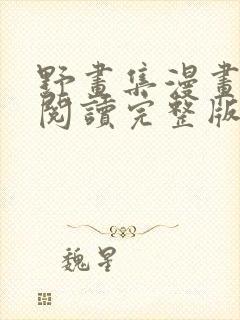 野畫集漫畫
閱讀完整版
魏星